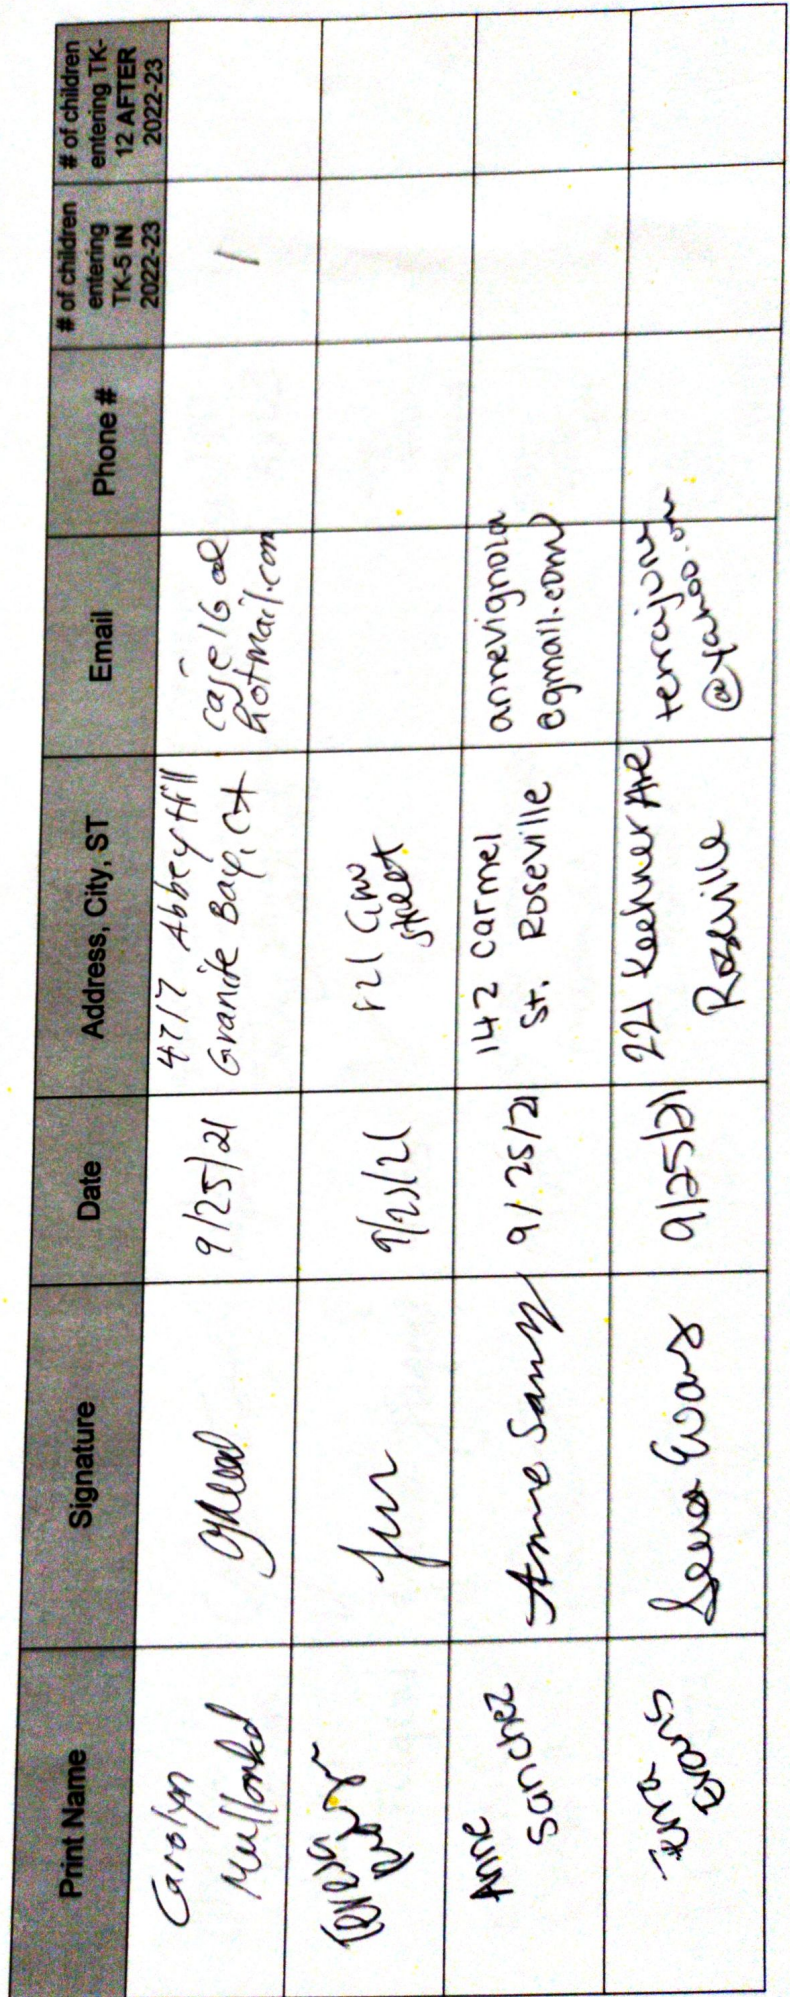 Print Name
Signature
Date
Address, City, ST
Email
Phone #
# of children
entering
TK-5 IN
2022-23
# of children
entering TK-
12 AFTER
2022-23
Carolyn
9/25/21
4717 Abbey Hill
Granite Bay, CA
case16@
hotmail.com
1
street
Anne
Sanchez
Anne Sanz
9/25/21
142 Carmel
St. Roseville
annevignola
@gmail.com
Terra
Evans
Evans
9/25/21
221 Keehner Ave
Roseville
@yahoo.com